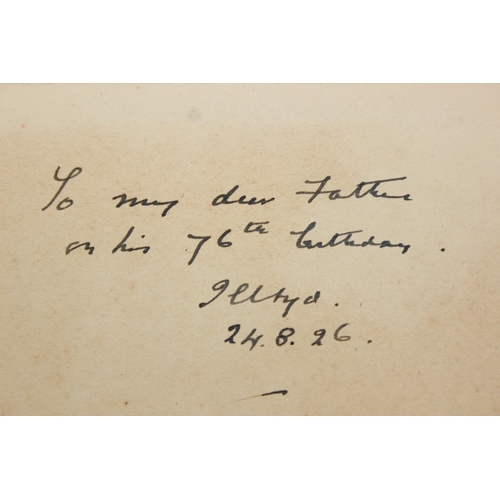 To my dear Father
on his 76th birthday.
Illtyd.
24.8.26.